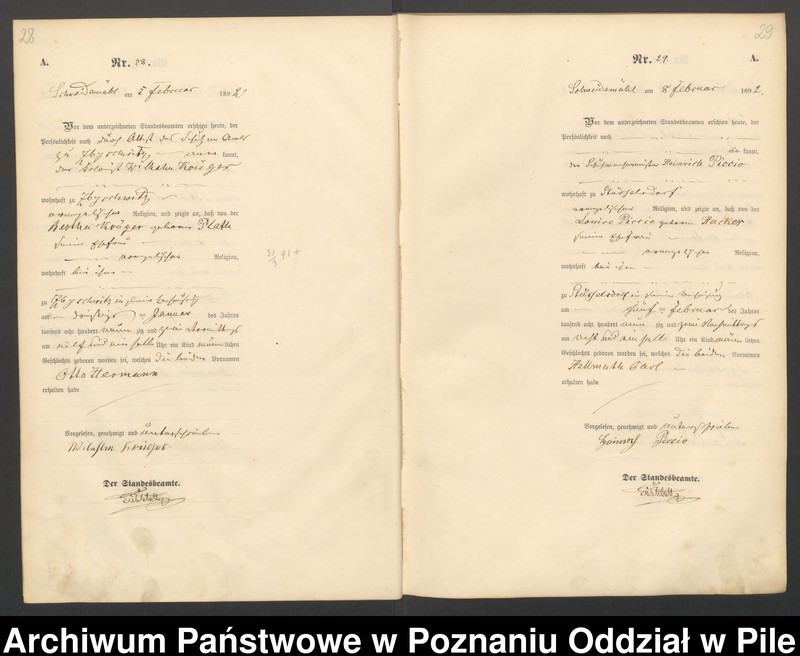 28
A.
Nr. 28.
Schneidemühl am 5 Februar 1892
Vor dem unterzeichneten Standesbeamten erschien heute, der
Persönlichkeit nach durch Attest des
zu kannt,
der Kolonist Wilhelm Krüger
wohnhaft zu
evangelischer Religion, und zeigte an, daß von der
Bertha Krüger geborene Plath
seiner Ehefrau
evangelischer Religion,
wohnhaft bei ihm
zu in seiner Behausung
am dreißigsten Januar des Jahres
tausend acht hundert neunzig und zwei Vormittags
um elf und ein halb Uhr ein Kind männlichen
Geschlechts geboren worden sei, welches die beiden Vornamen
Otto Hermann
erhalten habe
Vorgelesen, genehmigt und unterschrieben
Wilhelm Krüger
Der Standesbeamte.
29
Nr. 29.
A.
Schneidemühl am 8 Februar 1892.
Vor dem unterzeichneten Standesbeamten erschien heute, der
Persönlichkeit nach
kannt,
der Heinrich Piccio
wohnhaft zu
evangelischer Religion, und zeigte an, daß von der
Louise Piccio geborene Hacker
seiner Ehefrau
evangelischer Religion,
wohnhaft bei ihm
zu in seiner Behausung
am fünften Februar des Jahres
tausend acht hundert neunzig und zwei Nachmittags
um acht und ein halb Uhr ein Kind männlichen
Geschlechts geboren worden sei, welches die beiden Vornamen
Hellmuth Carl
erhalten habe
Vorgelesen, genehmigt und unterschrieben
Heinrich Piccio
Der Standesbeamte.
Archiwum Państwowe w Poznaniu Oddział w Pile